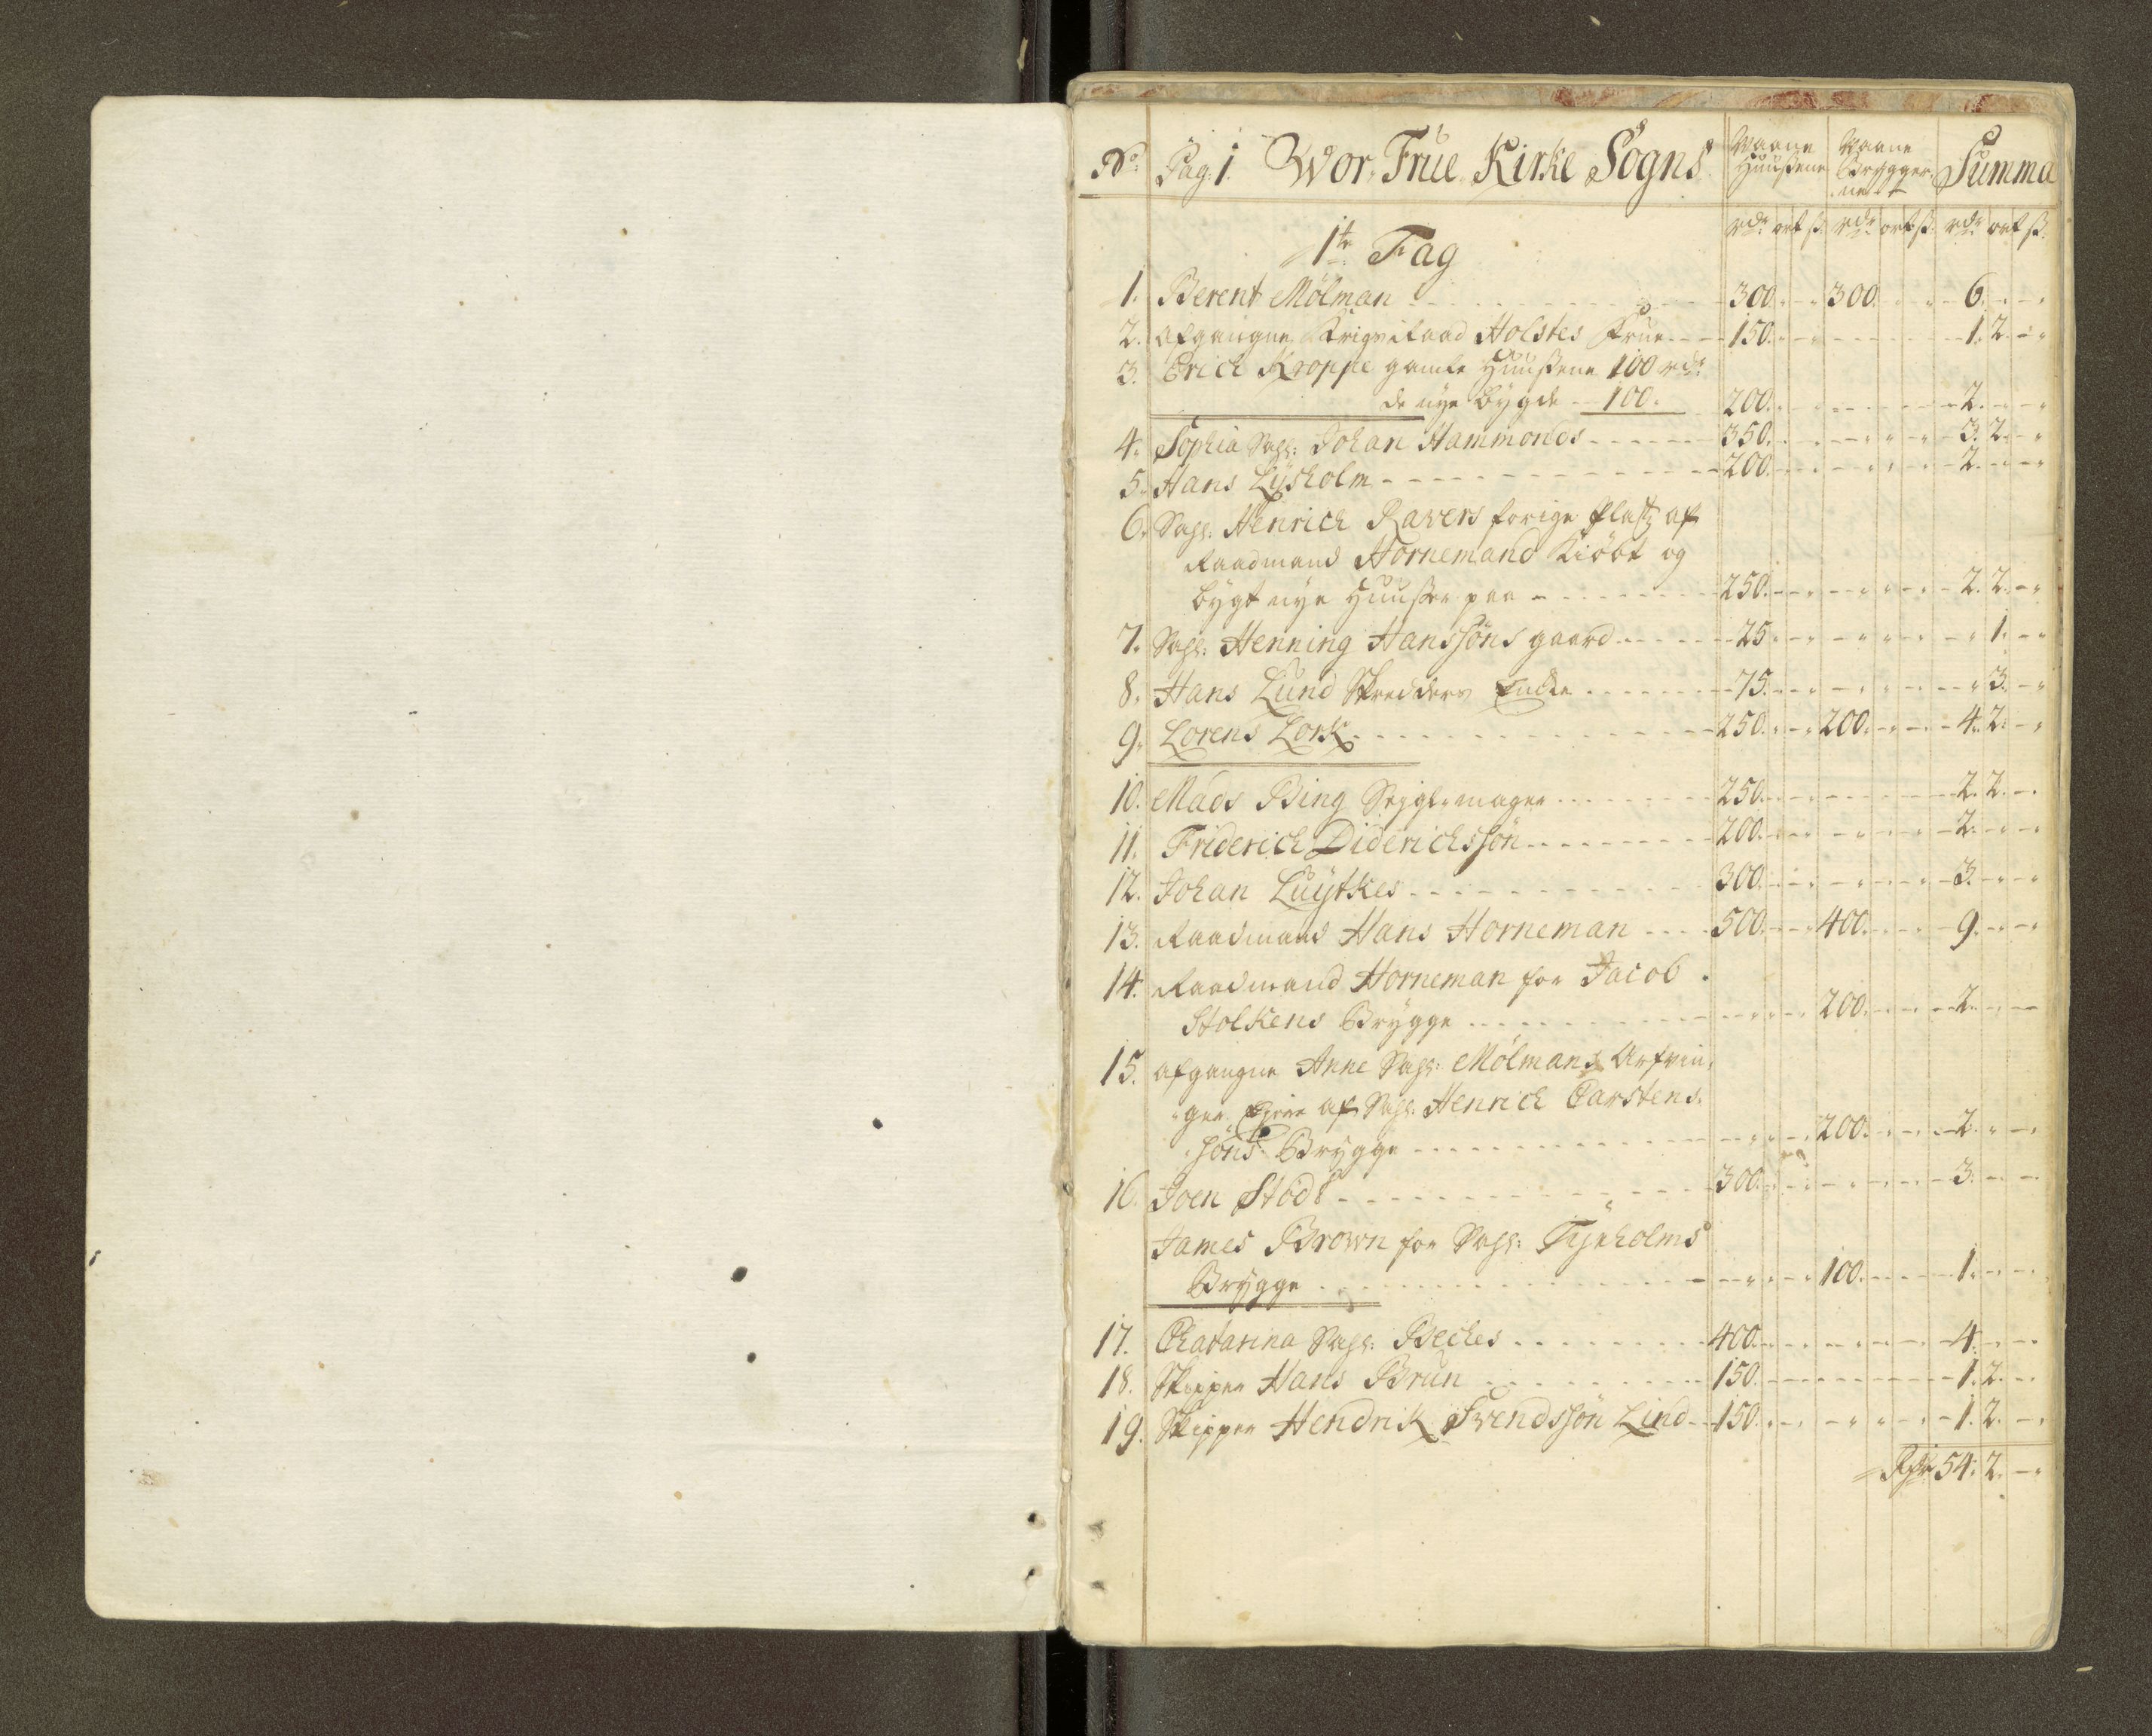 No. Pag: 1. Wor Frue Kirke Sogns Paane Huußene Paane Brygger Summa
ne
rdr ort ß rdr ort ß rdr ort ß
1te Fag
1. Berent Mølman 300. 300. 6.
2. afgangne Krigsraad Holstes Frue 150. 1. 2.
3. Erich Kroppe gamle Huußene 100 rdr
de nye bygde 100. 200. 2.
4. Sophia Sahl: Johan Hammonds 350. 3. 2.
5. Hans Lysholm 200. 2.
6. Sahl: Henrich Ravers forige Platz af
Raadmand Hornemand Kiøbt og
bygt nye Huußer paa 250. 2. 2.
7. Sahl: Henning Hanssøns gaard 25. 1.
8. Hans Lund Skredders Encke 75. 3.
9. Lorens Lork 250. 200. 4. 2.
10. Mads Bing Seyglmager 250. 2. 2.
11. Friderich Diderichssøn 200. 2.
12. Johan Luytkes 300. 3.
13. Raadmand Hans Horneman 500. 400. 9.
14. Raadmand Horneman for Jacob
Stolkens Brygge 200. 2.
15. afgangne Anne Sahl: Mølmans Arfvin
ger Ejere af Sahl: Henrich Carstens
søns Brygge 200. 2.
16. Joen Stöds 300. 3.
James Brown for Sahl: Tyrholms
Brygge 100. 1.
17. Chatarina Sahl: Beches 400. 4.
18. Skipper Hans Brun 150. 1. 2.
19. Skipper Hendrik Svendssøn Lind 150. 1. 2.
Rdr 54. 2.